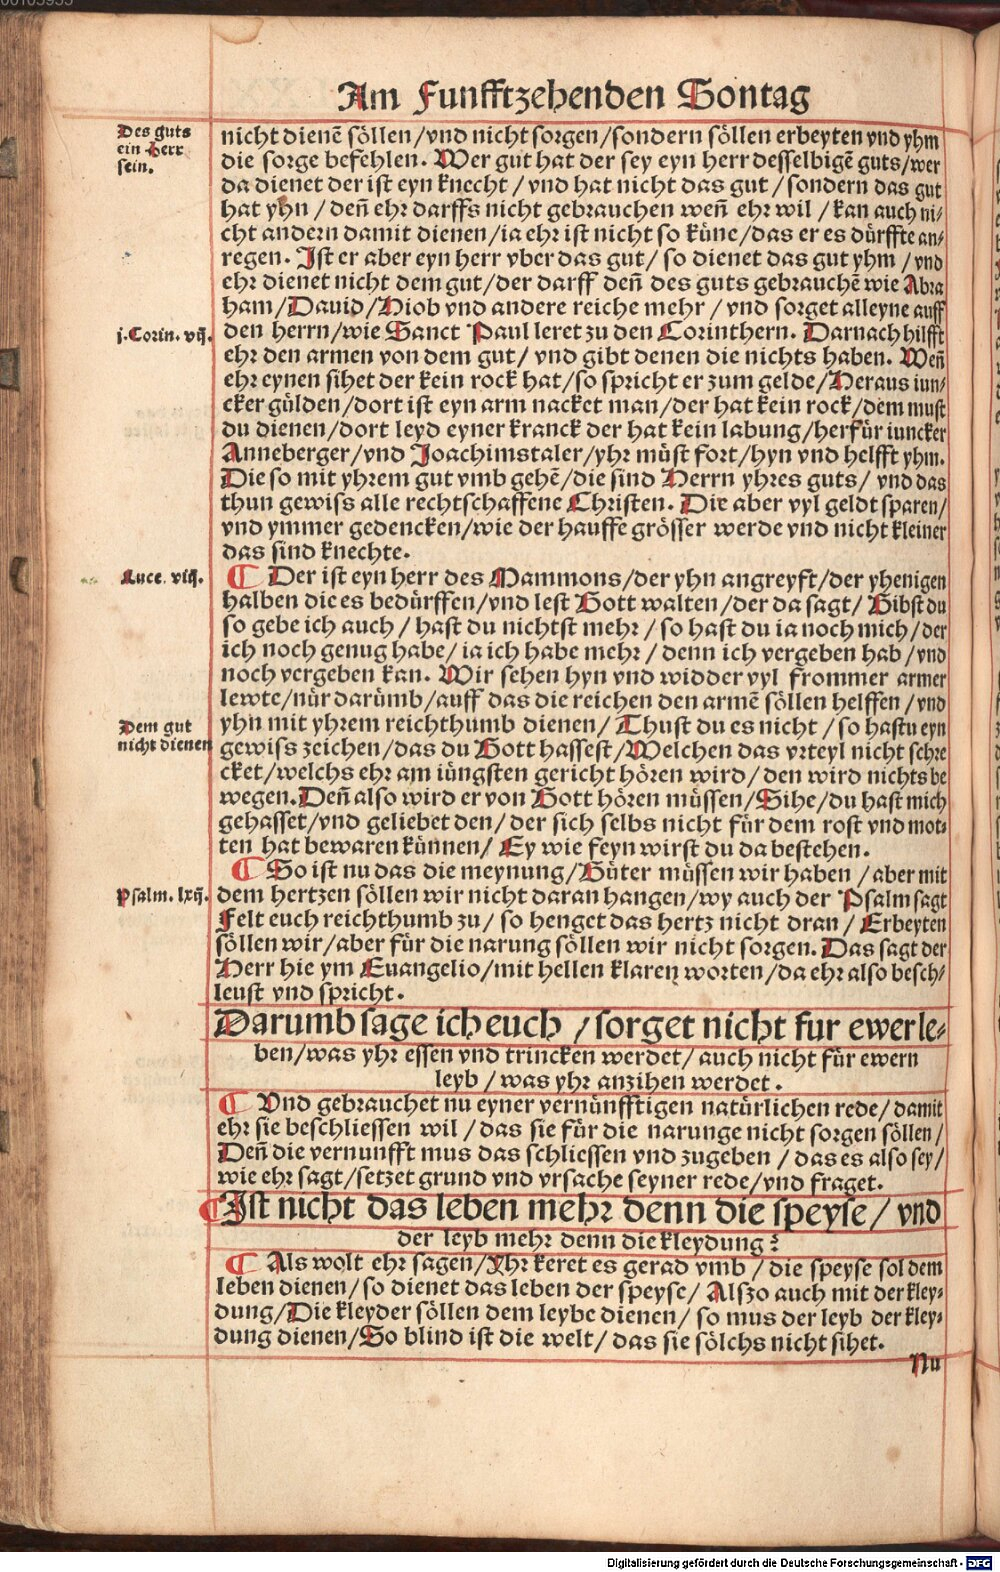 Am Funfftzehenden Sontag
Des guts
ein herr
sein.
nicht dienẽ söllen/vnd nicht sorgen/sondern söllen erbeyten vnd yhm
die sorge befehlen. Wer gut hat der sey eyn herr desselbigẽ guts/wer
da dienet der ist eyn knecht/vnd hat nicht das gut/sondern das gut
hat yhn/deñ ehr darffs nicht gebrauchen weñ ehr wil/kan auch ni-
cht andern damit dienen/ia ehr ist nicht so küne/das er es dürffte an-
regen. Ist er aber eyn herr vber das gut/so dienet das gut yhm/vnd
ehr dienet nicht dem gut/der darff deñ des guts gebrauchẽ wie Abra
ham/Dauid/Hiob vnd andere reiche mehr/vnd sorget alleyne auff
j.Corin. vij.
den herrn/wie Sanct Paul leret zu den Corinthern. Darnach hilfft
ehr den armen von dem gut/vnd gibt denen die nichts haben. Weñ
ehr eynen sihet der kein rock hat/so spricht er zum gelde/Heraus iun-
cker gülden/dort ist eyn arm nacket man/der hat kein rock/dem must
du dienen/dort leyd eyner kranck der hat kein labung/herfür iuncker
Anneberger/vnd Joachimstaler/yhr müst fort/hyn vnd helfft yhm.
Die so mit yhrem gut vmb gehẽ/die sind Herrn yhres guts/vnd das
thun gewiss alle rechtschaffene Christen. Die aber vyl geldt sparen/
vnd ymmer gedencken/wie der hauffe grösser werde vnd nicht kleiner
das sind knechte.
Luce. viij.
¶ Der ist eyn herr des Mammons/der yhn angreyft/der yhenigen
halben die es bedürffen/vnd lest Gott walten/der da sagt/Gibst du
so gebe ich auch/hast du nichtst mehr/so hast du ia noch mich/der
ich noch genug habe/ia ich habe mehr/denn ich vergeben hab/vnd
noch vergeben kan. Wir sehen hyn vnd widder vyl frommer armer
lewte/nür darümb/auff das die reichen den armẽ söllen helffen/vnd
Dem gut
nicht dienen
yhn mit yhrem reichthumb dienen/Thust du es nicht/so hastu eyn
gewiss zeichen/das du Gott hassest/Welchen das vrteyl nicht schre
cket/welchs ehr am iüngsten gericht hören wird/den wird nichts be
wegen. Deñ also wird er von Gott hören müssen/Sihe/du hast mich
gehasset/vnd geliebet den/der sich selbs nicht für dem rost vnd mot-
ten hat bewaren künnen/Ey wie feyn wirst du da bestehen.
¶ So ist nu das die meynung/Güter müssen wir haben/aber mit
Psalm. lxij.
dem hertzen söllen wir nicht daran hangen/wy auch der Psalm sagt
Felt euch reichthumb zu/so henget das hertz nicht dran/Erbeyten
söllen wir/aber für die narung söllen wir nicht sorgen. Das sagt der
Herr hie ym Euangelio/mit hellen klaren worten/da ehr also besch-
leust vnd spricht.
Darumb sage ich euch/sorget nicht fur ewer le-
ben/was yhr essen vnd trincken werdet/auch nicht für ewern
leyb/was yhr anzihen werdet.
¶ Vnd gebrauchet nu eyner vernünfftigen natürlichen rede/damit
ehr sie beschliessen wil/das sie für die narunge nicht sorgen söllen/
Deñ die vernunfft mus das schliessen vnd zugeben/das es also sey/
wie ehr sagt/setzet grund vnd vrsache seyner rede/vnd fraget.
¶ Ist nicht das leben mehr denn die speyse/vnd
der leyb mehr denn die kleydung?
¶ Als wolt ehr sagen/Yhr keret es gerad vmb/die speyse sol dem
leben dienen/so dienet das leben der speyse/Alszo auch mit der kley-
dung/Die kleyder söllen dem leybe dienen/so mus der leyb der kley-
dung dienen/So blind ist die welt/das sie sölchs nicht sihet.
Nu
Digitalisierung gefördert durch die Deutsche Forschungsgemeinschaft - DFG